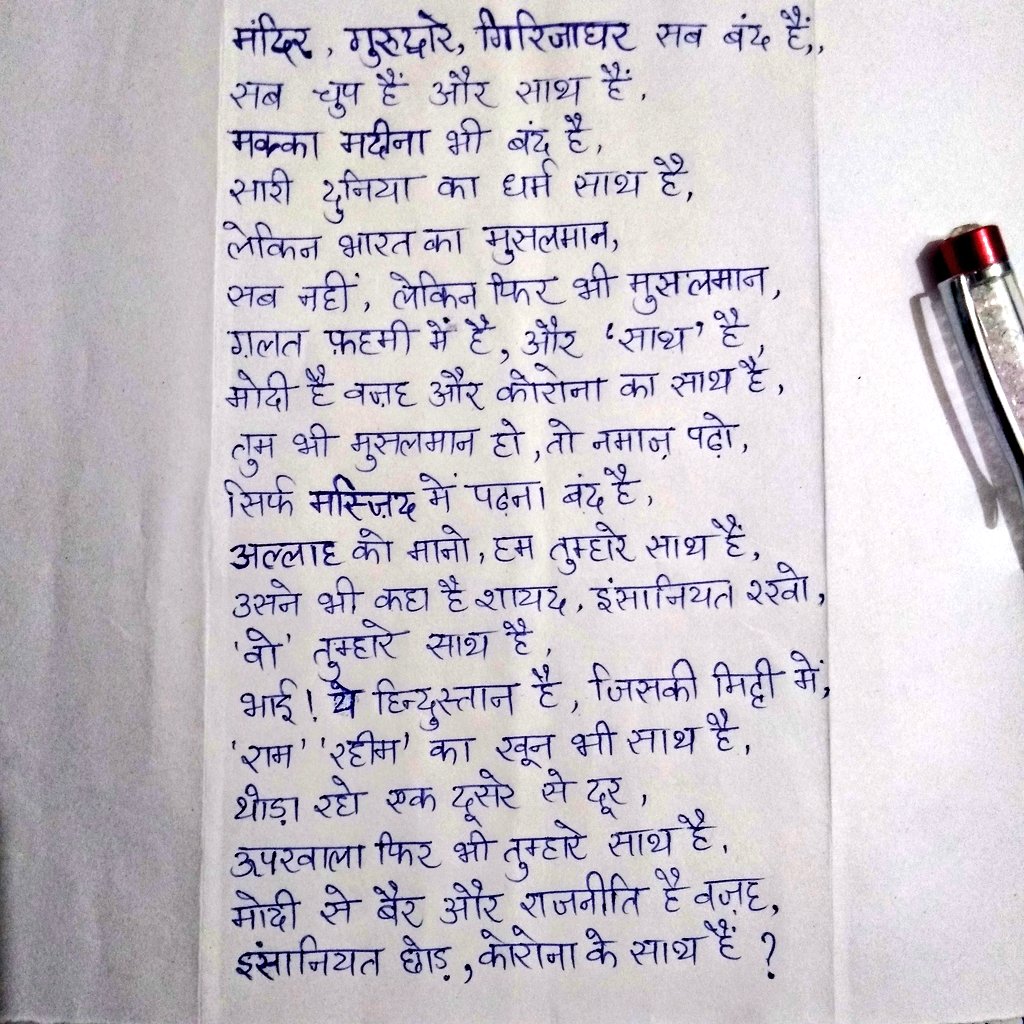 मंदिर, गुरुद्वारे, गिरिजाघर सब बंद हैं,,
सब चुप हैं और साथ हैं,
मक्का मदीना भी बंद है,
सारी दुनिया का धर्म साथ है,
लेकिन भारत का मुसलमान,
सब नहीं, लेकिन फिर भी मुसलमान,
ग़लत फ़हमी में है, और 'साथ' है,
मोदी है वज़ह और कोरोना का साथ है,
तुम भी मुसलमान हो, तो नमाज़ पढ़ो,
सिर्फ मस्ज़िद में पढ़ना बंद है,
अल्लाह को मानो, हम तुम्हारे साथ हैं,
उसने भी कहा है शायद, इंसानियत रखो,
'वो' तुम्हारे साथ है,
भाई! ये हिन्दुस्तान है, जिसकी मिट्टी में,
'राम' 'रहीम' का खून भी साथ है,
थोड़ा रहो एक दूसरे से दूर,
ऊपरवाला फिर भी तुम्हारे साथ है,
मोदी से बैर और राजनीति है वज़ह,
इंसानियत छोड़, कोरोना के साथ हैं ?